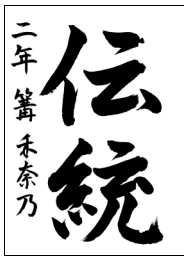 伝統
二年 篝 禾奈乃